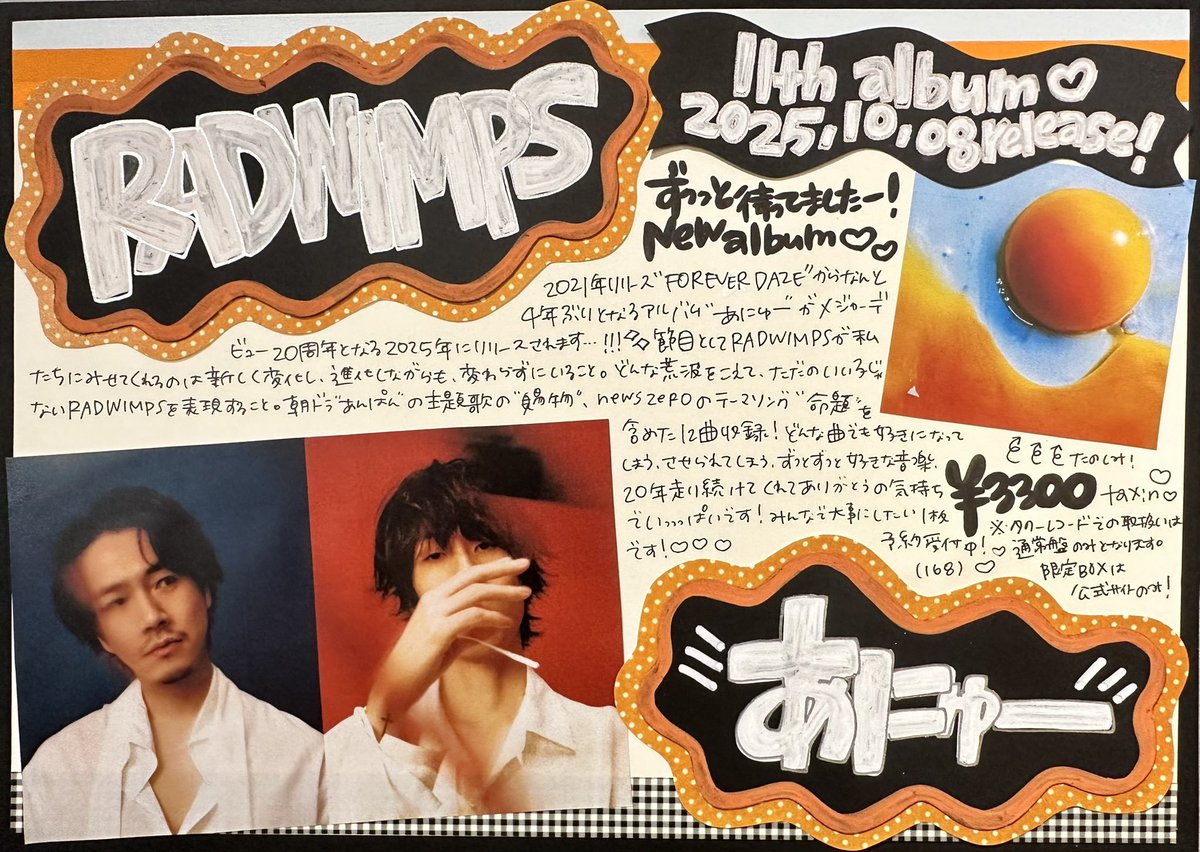 RADWIMPS
11th album♡
2025,10,08release!
ずっっと待ってましたー!
New album♡♡
2021年リリース"FOREVER DAZE"からなんと
4年ぶりとなるアルバム"あにゅー"がメジャーデ
ビュー20周年となる2025年にリリースされます…!!!節目としてRADWIMPSが私
たちにみせてくれるのは新しく変化し、進化しながらも、変わらずにいること。どんな荒波をこえて、ただのいい子じゃ
ないRADWIMPSを表現すること。朝ドラ"あんぱん"の主題歌の"賜物"、news zeroのテーマソング"命題"を
含めた12曲収録!どんな曲でも好きになって
しまう、させられてしまう、ずっとずっと好きな音楽、
20年走り続けてくれてありがとうの気持ち
でいっっぱいです!みんなで大事にしたい1枚
です!♡♡♡
あにゅー
たのしみ!
¥3300 tax in♡
予約受付中!♡
(168)♡
※タワーレコードでの取扱いは
通常盤のみとなります。
限定BOXは
公式サイトのみ!
あにゅー